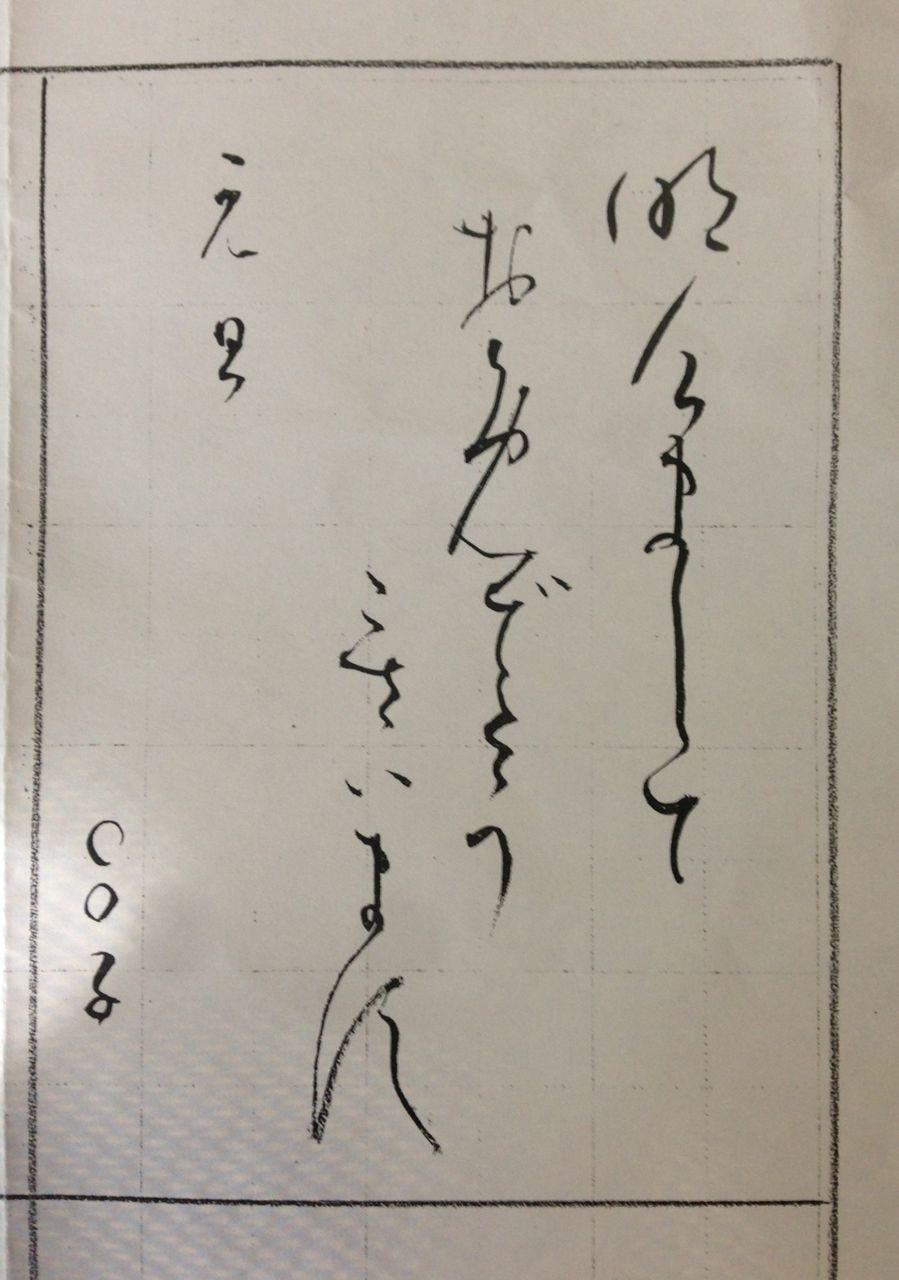 明けまして
おめでとう
ございます
元旦
〇〇子